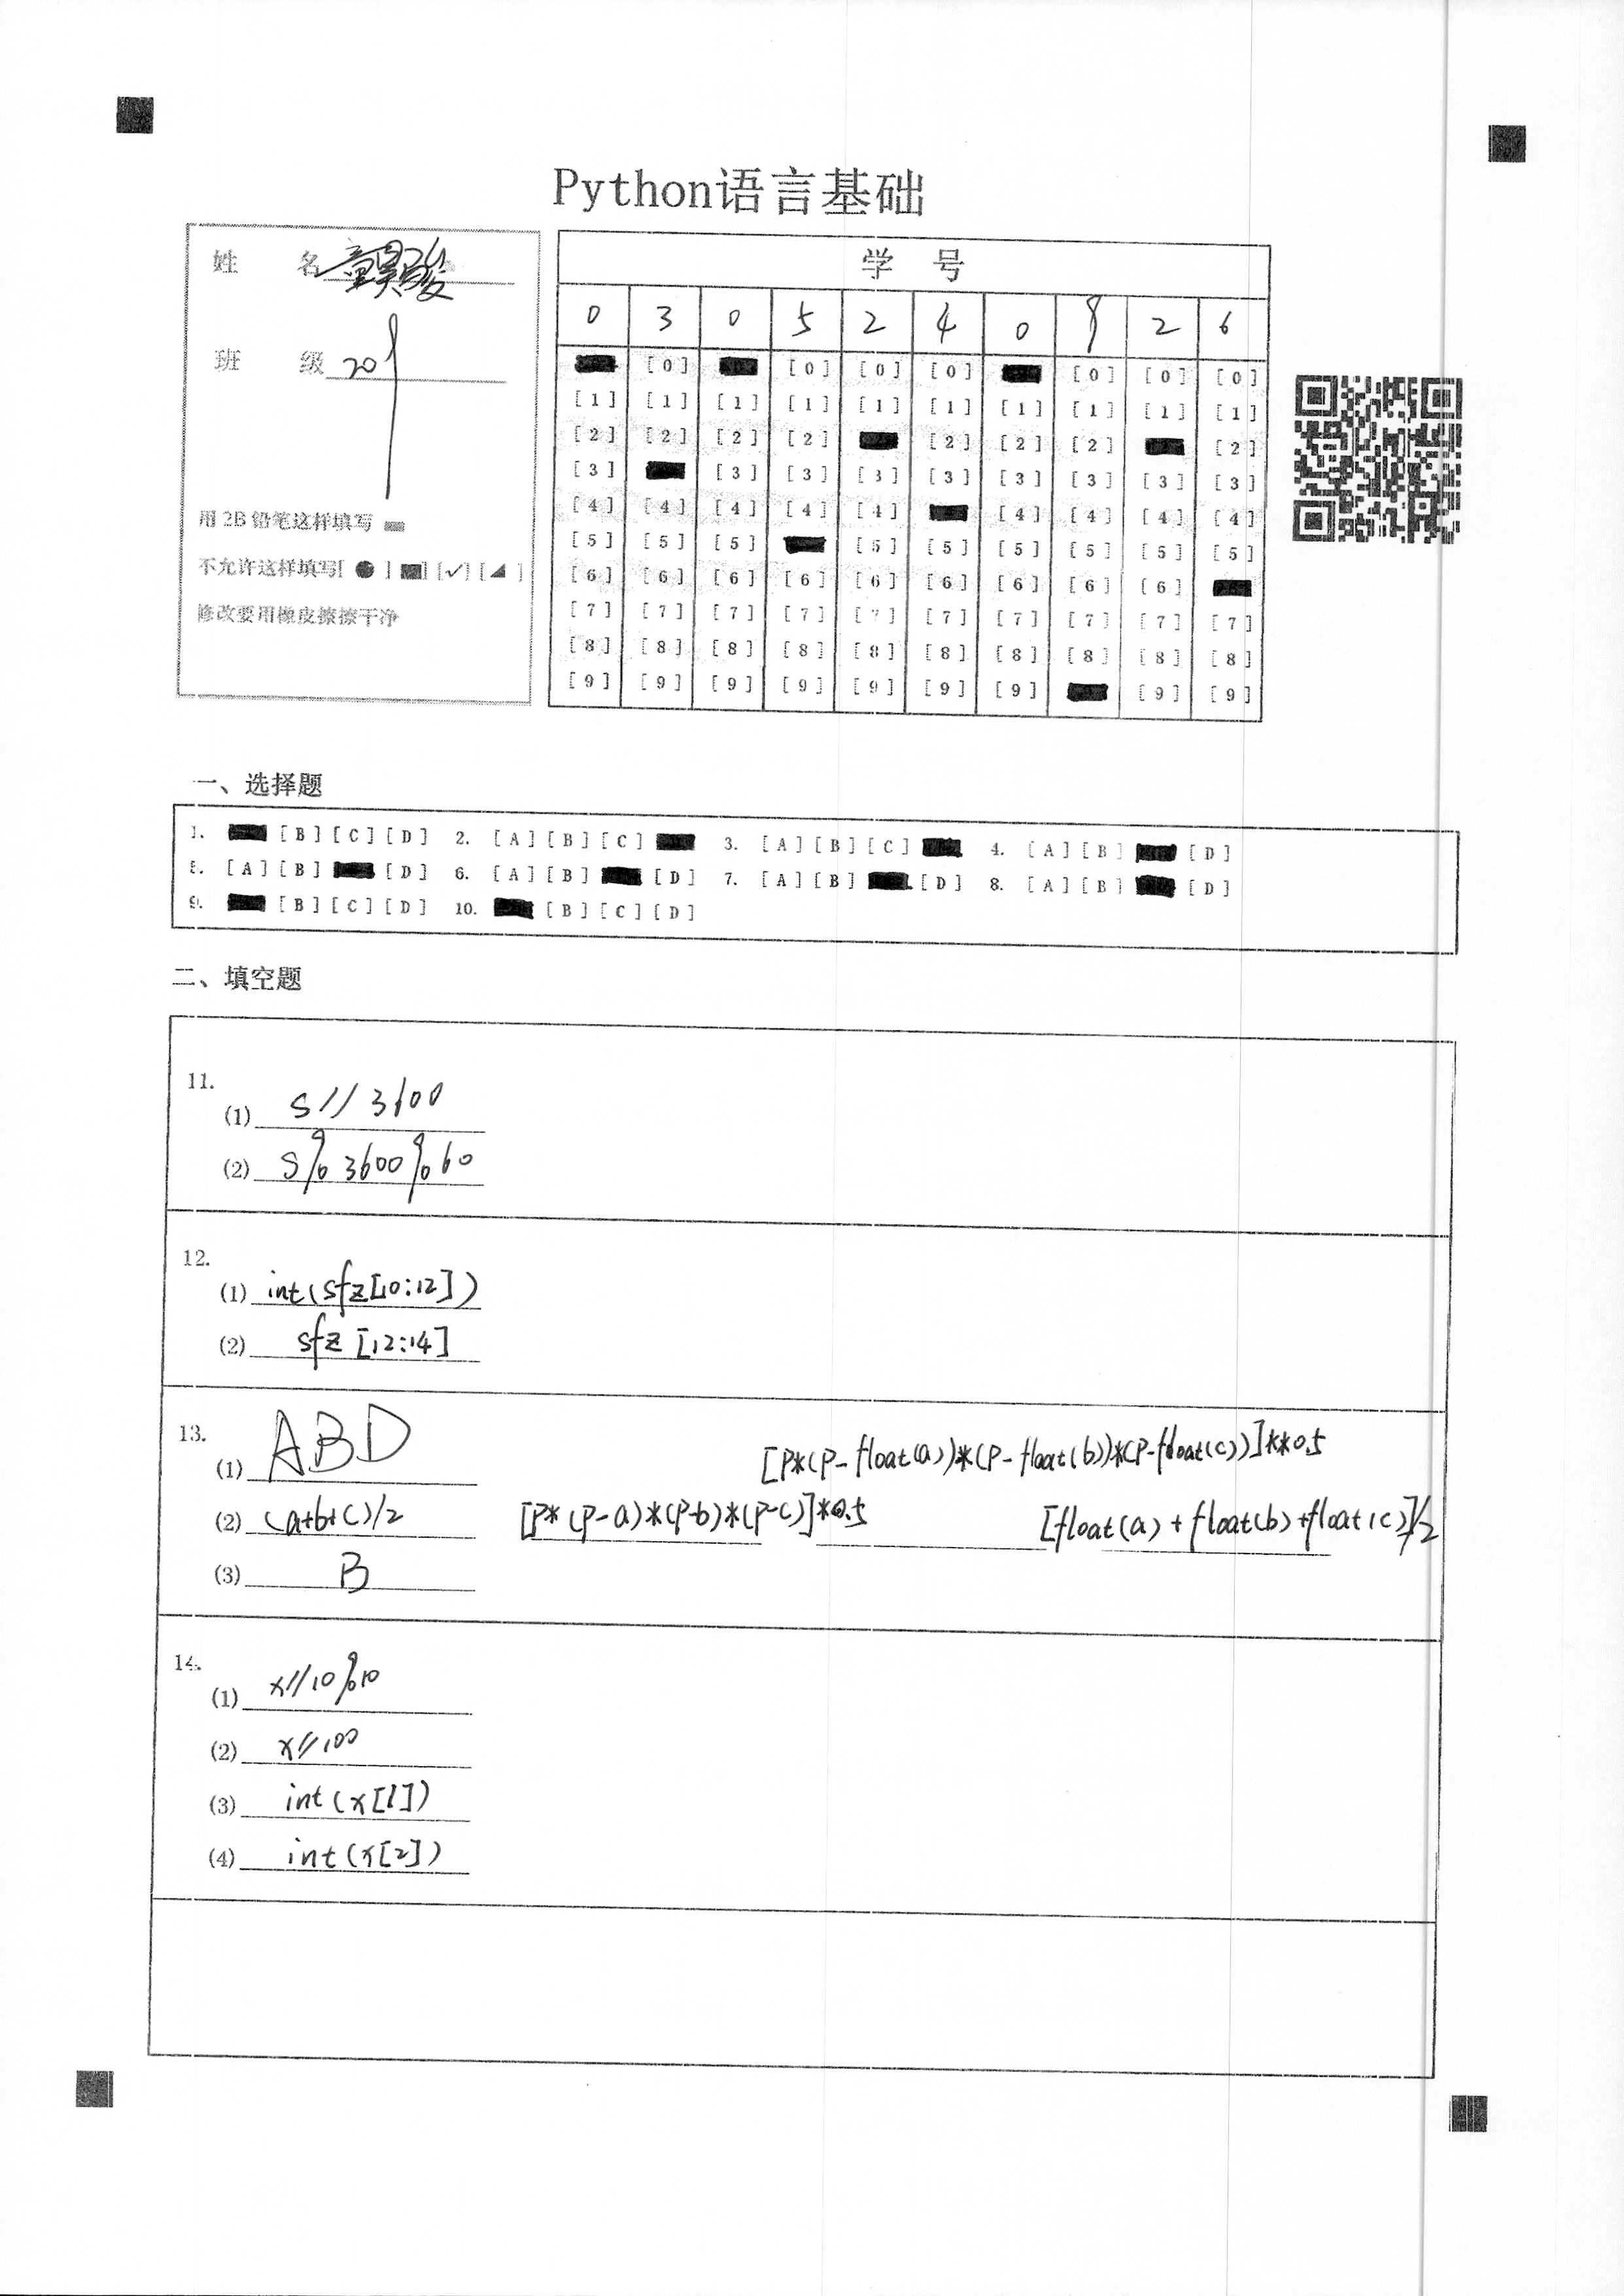 Python语言基础
姓 名
班 级 209
用 2B 铅笔这样填写
不允许这样填写[ ● ] ■] [✓] [◢ ]
修改要用橡皮擦擦干净
学 号
0 3 0 5 2 4 0 9 2 6
[0] [0] [0] [0] [0] [0] [0]
[1] [1] [1] [1] [1] [1] [1] [1] [1] [1]
[2] [2] [2] [2] [2] [2] [2] [2]
[3] [3] [3] [3] [3] [3] [3] [3] [3]
[4] [4] [4] [4] [4] [4] [4] [4] [4]
[5] [5] [5] [5] [5] [5] [5] [5] [5]
[6] [6] [6] [6] [6] [6] [6] [6] [6]
[7] [7] [7] [7] [7] [7] [7] [7] [7] [7]
[8] [8] [8] [8] [8] [8] [8] [8] [8] [8]
[9] [9] [9] [9] [9] [9] [9] [9] [9]
一、选择题
1. [B] [C] [D] 2. [A] [B] [C] 3. [A] [B] [C] 4. [A] [B] [D]
5. [A] [B] [D] 6. [A] [B] [D] 7. [A] [B] [D] 8. [A] [B] [D]
9. [B] [C] [D] 10. [B] [C] [D]
二、填空题
11.
(1) s//3600
(2) s%3600%60
12.
(1) int(sfz[10:12])
(2) sfz[12:14]
13.
(1) ABD
[P*(P-float(a))*(P-float(b))*(P-float(c))]**0.5
(2) (a+b+c)/2 [P*(P-a)*(P-b)*(P-c)]*0.5 [float(a)+float(b)+float(c)]/2
(3) B
14.
(1) x//10%10
(2) x//100
(3) int(x[1])
(4) int(x[2])